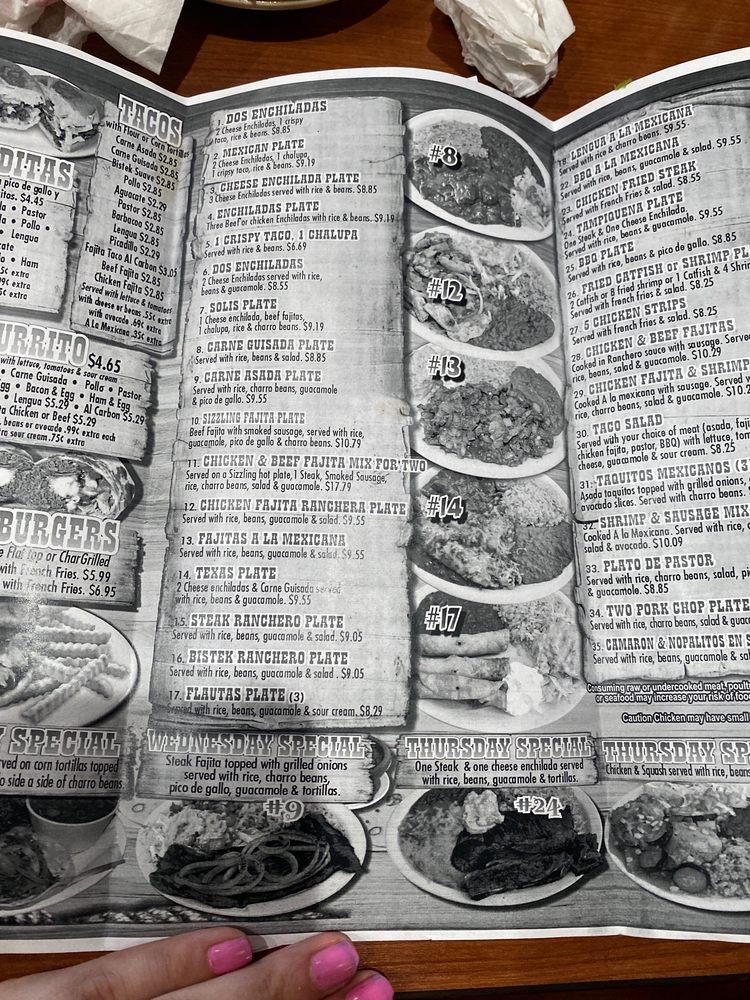 TACOS
with Flour or Corn Tortillas
Carne Asada $2.85
Carne Guisada $2.85
Bistek Suave $2.85
Pollo $2.85
Aguacate $2.29
Pastor $2.85
Barbacoa $2.85
Lengua $2.85
Picadillo $2.29
Fajita Taco Al Carbon $3.05
Beef Fajita $2.85
Chicken Fajita $2.85
Served with lettuce & tomatoes
with cheese or beans .55¢ extra
with avocado .69¢ extra
A La Mexicana .35¢ extra
DITAS
pico de gallo y
itos. $4.45
• Pastor
Pollo •
• Lengua
• Ham
5¢ extra
99¢ extra
5¢ extra
URRITO $4.65
with lettuce, tomatoes & sour cream
• Carne Guisada • Pollo • Pastor
Egg • Bacon & Egg • Ham & Egg
Lengua $5.29 • Al Carbon $5.29
Chicken or Beef $5.29
beans or avocado .99¢ extra each
sour cream .75¢ extra
BURGERS
Flat top or CharGrilled
with French Fries. $5.99
with French Fries. $6.95
1. DOS ENCHILADAS
2 Cheese Enchiladas, 1 crispy
taco, rice & beans. $8.85
2. MEXICAN PLATE
2 Cheese Enchiladas, 1 chalupa,
1 crispy taco, rice & beans. $9.19
3. CHEESE ENCHILADA PLATE
3 Cheese Enchiladas served with rice & beans. $8.85
4. ENCHILADAS PLATE
Three Beef or chicken Enchiladas with rice & beans. $9.19
5. 1 CRISPY TACO, 1 CHALUPA
Served with rice & beans. $6.69
6. DOS ENCHILADAS
2 Cheese Enchiladas served with rice,
beans & guacamole. $8.55
7. SOLIS PLATE
1 Cheese enchilada, beef fajitas,
1 chalupa, rice & charro beans. $9.19
8. CARNE GUISADA PLATE
Served with rice, beans & salad. $8.85
9. CARNE ASADA PLATE
Served with rice, charro beans, guacamole
& pico de gallo. $9.55
10. SIZZLING FAJITA PLATE
Beef Fajita with smoked sausage, served with rice,
guacamole, pico de gallo & charro beans. $10.79
11. CHICKEN & BEEF FAJITA MIX FOR TWO
Served on a Sizzling hot plate, 1 Steak, Smoked Sausage,
rice, charro beans, salad & guacamole. $17.79
12. CHICKEN FAJITA RANCHERA PLATE
Served with rice, beans, guacamole & salad. $9.55
13. FAJITAS A LA MEXICANA
Served with rice, beans, guacamole & salad. $9.55
14. TEXAS PLATE
2 Cheese enchiladas & Carne Guisada served
with rice, beans & guacamole. $9.55
15. STEAK RANCHERO PLATE
Served with rice, beans, guacamole & salad. $9.05
16. BISTEK RANCHERO PLATE
Served with rice, beans, guacamole & salad . $9.05
17. FLAUTAS PLATE (3)
Served with rice, beans, guacamole & sour cream. $8.29
#8
#12
#13
#14
#17
18. LENGUA A LA MEXICANA
Served with rice & charro beans. $9.55
22. BBQ A LA MEXICANA
Served with rice, beans, guacamole & salad. $9.55
23. CHICKEN FRIED STEAK
Served with French Fries & salad. $8.55
24. TAMPIQUENA PLATE
One Steak & One Cheese Enchilada,
Served with rice, beans & guacamole. $9.55
25. BBQ PLATE
Served with rice, beans & pico de gallo. $8.85
26. FRIED CATFISH or SHRIMP PL
2 Catfish or 8 fried shrimp or 1 Catfish & 4 Shrim
Served with french fries & salad. $8.25
27. 5 CHICKEN STRIPS
Served with french fries & salad. $8.25
28. CHICKEN & BEEF FAJITAS
Cooked in Ranchero sauce with sausage. Served
rice, beans, salad & guacamole. $10.29
29. CHICKEN FAJITA & SHRIMP
Cooked A la mexicana with sausage. Served w
rice, charro beans, salad & guacamole. $10.2
30. TACO SALAD
Served with your choice of meat (asada, faji
chicken fajita, pastor, BBQ) with lettuce, tom
cheese, guacamole & sour cream. $8.25
31. TAQUITOS MEXICANOS (3
Asada taquitos topped with grilled onions,
avocado slices. Served with charro beans.
32. SHRIMP & SAUSAGE MIX
Cooked A la Mexicana. Served with rice,
salad & avocado. $10.09
33. PLATO DE PASTOR
Served with rice, charro beans, salad, pi
& guacamole. $8.85
34. TWO PORK CHOP PLATE
Served with rice, beans, salad & guac
35. CAMARON & NOPALITOS EN S
Served with rice, beans, guacamole & sal
Consuming raw or undercooked meat, poult
or seafood may increase your risk of foo
Caution Chicken may have small
Y SPECIAL
rved on corn tortillas topped
o side a side of charro beans
WEDNESDAY SPECIAL
Steak Fajita topped with grilled onions
served with rice, charro beans,
pico de gallo, guacamole & tortillas.
#9
THURSDAY SPECIAL
One Steak & one cheese enchilada served
with rice, beans, guacamole & tortillas.
#24
THURSDAY SP
Chicken & Squash served with rice, bean